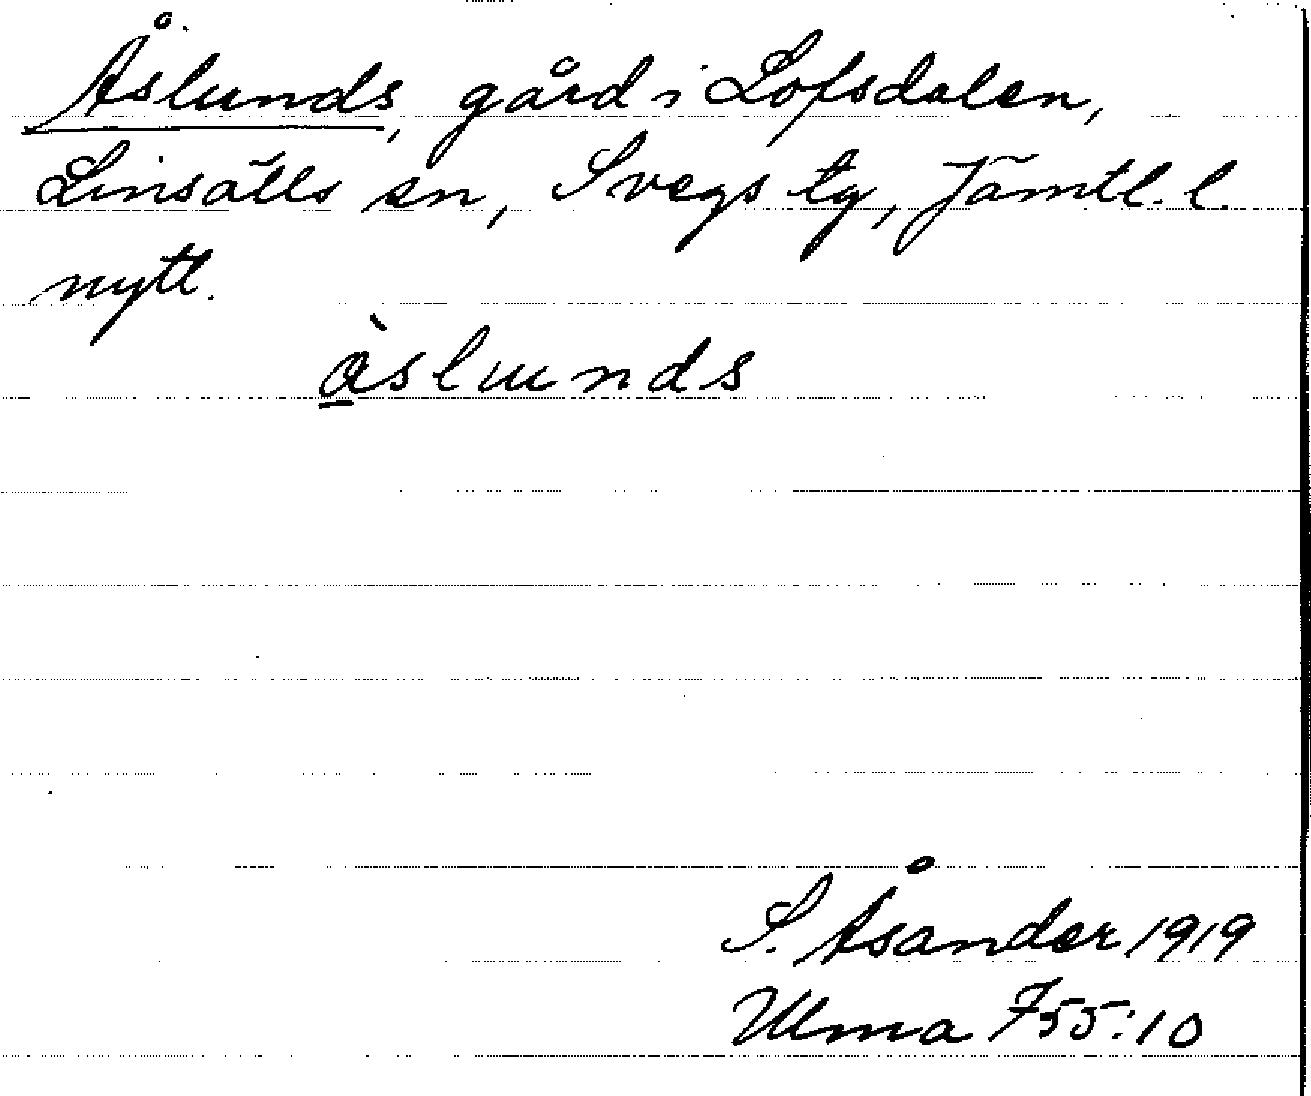 Åslunds, gård i Lofsdalen,
Linsälls sn, Svegs tg, Jämtl. l.
nytt.
àslunds
S. Åsander 1919
Ulma 755:10